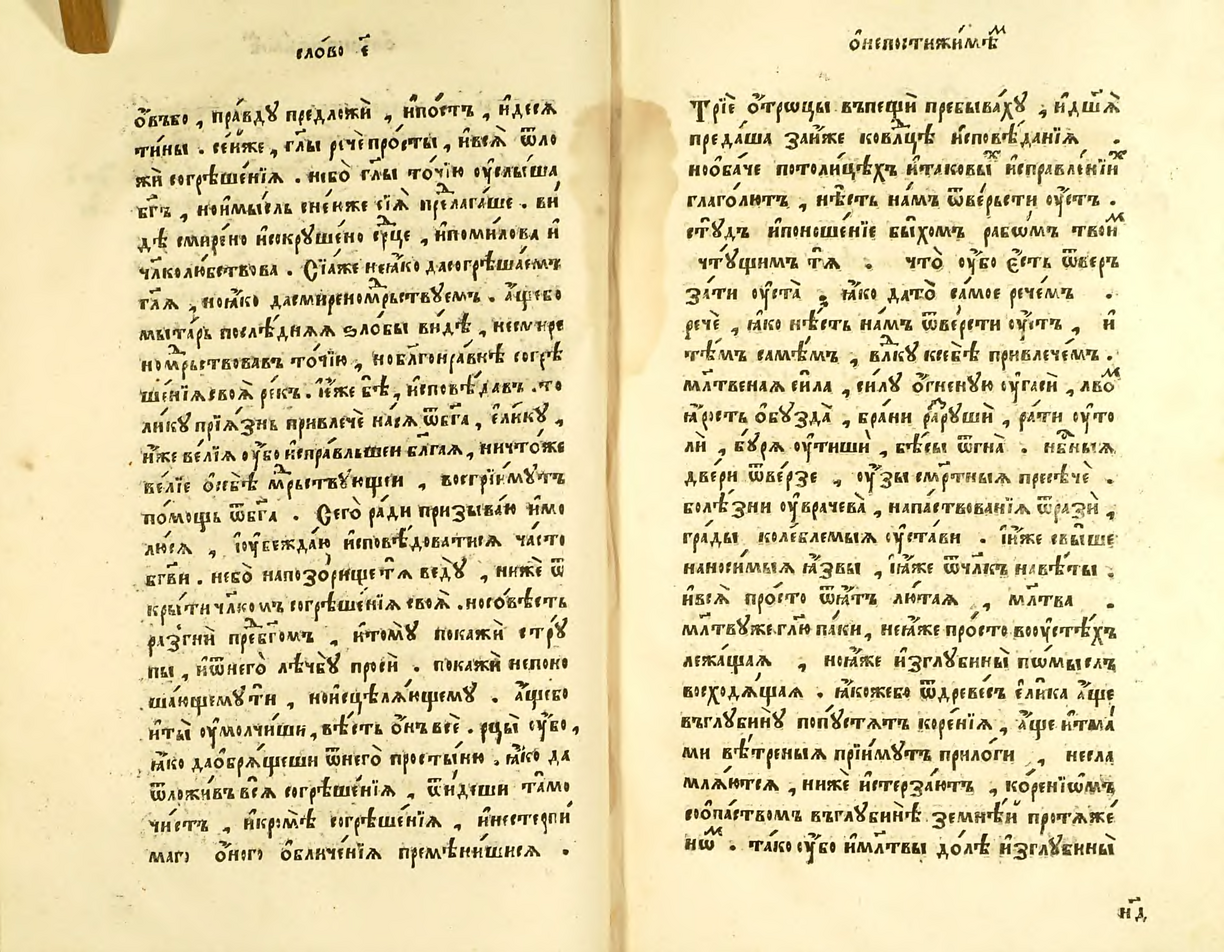 сло́во е҃
о҆́въбо , пра́вдꙋ предложѝ , и҆по́стъ , и҆десѧ
ти́ны . се́йже , гл҃ы рѐчепро́сты , и҆всѧ̀ ѿло
жѝ согрѣше́нїѧ . небо̀ гл҃ы то́чїю ᲂу҆слы́ша
бг҃ъ , ноимы́сль сне́юже сїѧ̀ предлага́ше . ви́
дѣ смире́но и҆сокрꙋше́но срⷣце , и҆поми́лова и҆
чл҃колю́бствова . Сїѧ́же не꙼ꙗ҆́ко дасогрѣша́емъ
гл҃ѧ , но꙼ꙗ҆́ко дасмиреномꙋ́дрьствꙋемъ . а҆́щебо
мы́тарь послѣ́днѧѧ ѕло́бы ви́дѣ , несмире
номꙋ́дрьствовавъ то́чїю , ноблагонра́внѣ согрѣ
ше́нїѧсвоѧ̀ ре́къ . і҆́же бѣ̀ , и҆сповѣ́давъ . то
ли́кꙋ прїѧ́знь привлечѐ насѧ̀ ѿбг҃а , є҆ли́кꙋ ,
и҆̀же ве́лїѧ ᲂу҆́бо и҆спра́вльшеи бл҃га́ѧ , ничто́же
ве́лїе ѻ҆себѣ̀ мꙋ́дрьствꙋющеи , воспрїи́мꙋтъ
по́мощь ѿбг҃а . Сего̀ ра́ди призыва́ю и҆мо
лю́сѧ , і҆ᲂу҆бежда́ю и҆сповѣ́доватисѧ ча́сто
бг҃ви . небо̀ напозо́рищетѧ̀ ведꙋ̀ , нижѐ ѿ
кры́ти чл҃комъ согрѣше́нїѧ своѧ̀ .носо́вѣсть
разгнѝ предбг҃омъ , и҆томꙋ̀ покажѝ стрꙋ́
пы , и҆ѿнего̀ лѣчбꙋ̀ просѝ . покажѝ непоно
ша́ющемꙋти , ноисцѣлѧ́ющемꙋ . а҆́щебо
и҆ты̀ ᲂу҆молчи́ши , вѣ́сть ѻ҆́нъ всѐ . рцы̀ ᲂу҆̀бо ,
ꙗ҆́ко даобрѧ́щеши ѿнего̀ просты́ню . ꙗ҆́ко да
ѿложи́въ всѧ̀ согрѣше́нїѧ , ѿи́деши та́мо
чи́стъ , и҆кромѣ̀ согрѣше́нїѧ , и҆нестерпи́
маго ѻ҆́ного ѻ҆бличе́нїѧ премѣни́шисѧ .
ѻ҆непостижи́мѣⷨ
Трїѐ ѻ҆́троцы въпещѝ пребыва́хꙋ , и҆дш҃ѧ̀
преда́ша за́нйже ковлⷣцѣ и҆сповѣ́данїѧ .
нооба́че потоли́цѣхъ и҆таковы́ⷯ и҆справле́нїиⷯ
глаго́лютъ , нѣ́сть на́мъ ѿве́рьсти ᲂу҆́стъ .
стꙋ́дъ и҆поноше́нїе бы́хомъ рабѡ́мъ твои́ⷨ
чтꙋ́щимъ тѧ̀ . что̀ ᲂу҆́бо є҆́сть ѿвер
за́ти ᲂу҆ста̀ ; ꙗ҆́ко дато̀ са́мое рече́мъ .
речѐ , ꙗ҆́ко нѣ́сть на́мъ ѿве́рсти ᲂу҆́стъ , и҆
тѣ́мъ самѣ́мъ , влⷣкꙋ ксебѣ̀ привлече́мъ .
мл҃твенаѧ си́ла , си́лꙋ ѻ҆́гненꙋю ᲂу҆гасѝ , лво́ⷨ
ꙗ҆́рость ѻ҆бꙋзда̀ , бра́ни разрꙋшѝ , ра́ти ᲂу҆то
лѝ , бꙋ́рѧ ᲂу҆тишѝ , бѣ́сы ѿгна̀ . нбⷭ҇ныѧ
две́ри ѿве́рзе , ᲂу҆́зы сме́ртныѧ пресѣчѐ .
болѣ́зни ᲂу҆врачева̀ , напа́ствованїѧ ѿразѝ ,
гра́ды коле́блемыѧ ᲂу҆ста́ви . і҆́же свы́ше
наноси́мыѧ ꙗ҆́звы , і҆ꙗ҆́же ѿчл҃къ навѣ́ты .
и҆всѧ̀ про́сто ѿѧ́тъ лю́таѧ , мл҃тва .
мл҃твꙋжегл҃ю па́ки , не꙼ꙗ҆́же про́сто воᲂу҆стѣ́хъ
лежа́щаѧ , но꙼ꙗ҆́же и҆зглꙋбины̀ по́мыслъ
восходѧ́щаѧ . ꙗ҆́коже́бо ѿдреве́съ є҆ли́ка а҆́ще
въглꙋбинꙋ̀ попꙋ́стѧтъ коре́нїѧ , а҆́ще и҆тма́
ми вѣ́треныѧ прїи́мꙋтъ прило́ги , несла
млѧ́ютсѧ , нижѐ и҆стерза́ютъ , коре́нїѡмъ
соопа́ствомъ въглꙋбинѣ̀ земнѣ́й протѧже
нѡ́ⷨ . та́ко ᲂу҆́бо и҆мл҃твы до́лѣ и҆зглꙋбины̀
н҃д